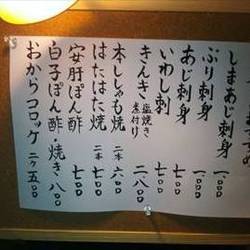 しまあじ刺身 一、〇〇〇
ぶり刺身 一、〇〇〇
あじ刺身 七〇〇
いわし刺 七〇〇
きんき 塩焼き 煮付け 二、八〇〇
本ししゃも焼 二本 六〇〇
はたはた焼 二本 七〇〇
安肝ぽん酢 七〇〇
白子ぽん酢・焼き 八〇〇
おからコロッケ 二ケ 五〇〇